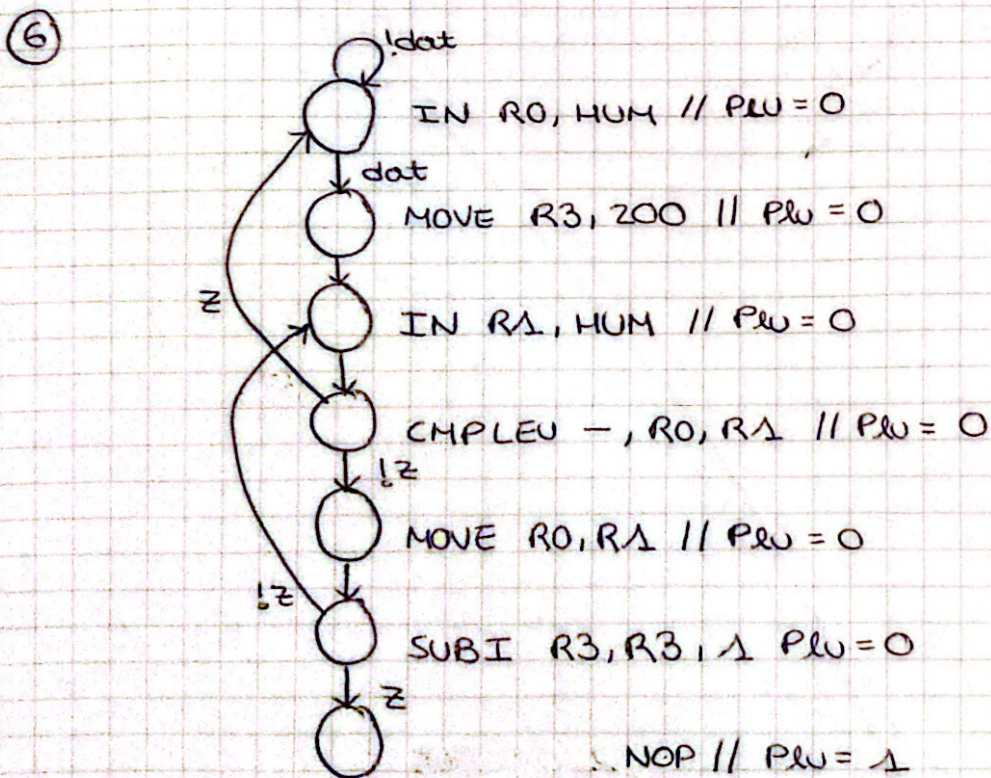 6
!dat
IN R0, HUM // Plu = 0
dat
MOVE R3, 200 // Plu = 0
z
IN R1, HUM // Plu = 0
CMPLEU -, R0, R1 // Plu = 0
!z
MOVE R0, R1 // Plu = 0
!z
SUBI R3, R3, 1 Plu = 0
z
NOP // Plu = 1